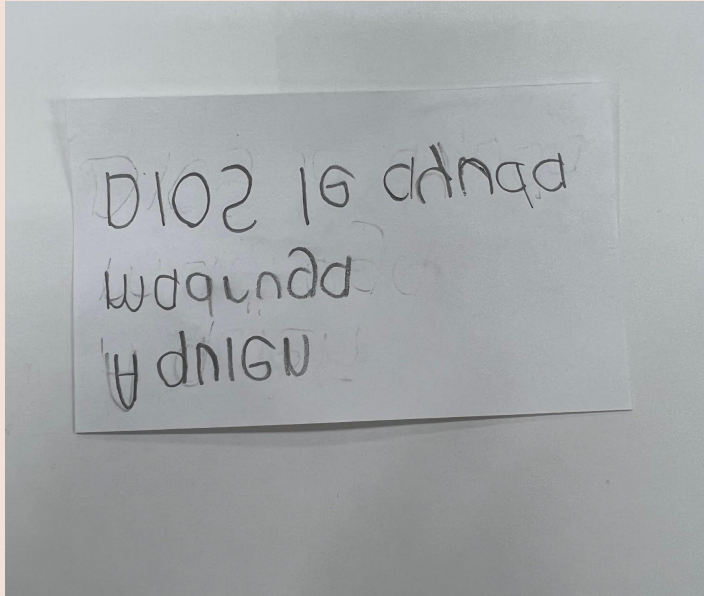 A quien
madruga
DIOS le ayuda